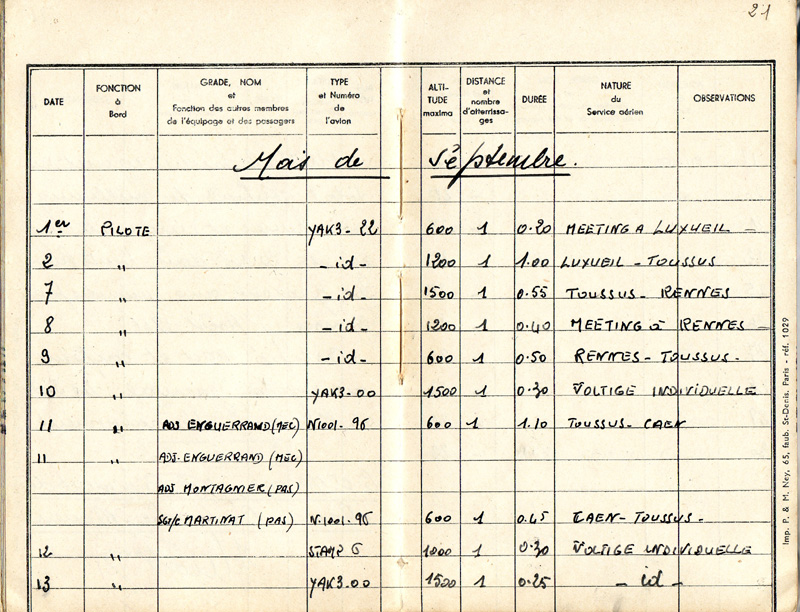 21
DATE FONCTION à Bord GRADE, NOM et Fonction des autres membres de l'équipage et des passagers TYPE et Numéro de l'avion ALTI- TUDE maxima DISTANCE et nombre d'atterrissa- ges DURÉE NATURE du Service aérien OBSERVATIONS
Mois de Septembre.
1er PILOTE YAK3-22 600 1 0.20 MEETING A LUXUEIL —
2 " -id- 1200 1 1.00 LUXUEIL - TOUSSUS
7 " -id- 1500 1 0.55 TOUSSUS - RENNES
8 " -id- 1200 1 0.40 MEETING à RENNES —
9 " -id- 600 1 0.50 RENNES - TOUSSUS -
10 " YAK3-00 1500 1 0.30 VOLTIGE INDIVIDUELLE
11 " ADJ ENGUERRAND (MEC) N1001-96 600 1 1.10 TOUSSUS - CAEN
11 " ADJ. ENGUERRAND (MEC)
ADJ MONTAGNIER (PAS)
SGT/C MARTINAT (PAS) N.1001-96 600 1 0.45 CAEN - TOUSSUS -
12 " STAMP 6 1000 1 0.30 VOLTIGE INDIVIDUELLE
13 " YAK3-00 1500 1 0.25 - id -
Imp. P. & M. Ney, 65, faub. St-Denis, Paris - réf. 1029